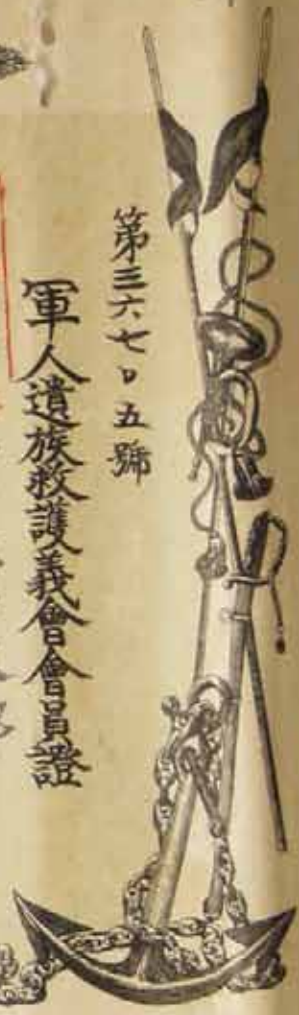 第三六七〇五號
軍人遺族救護義會會員證